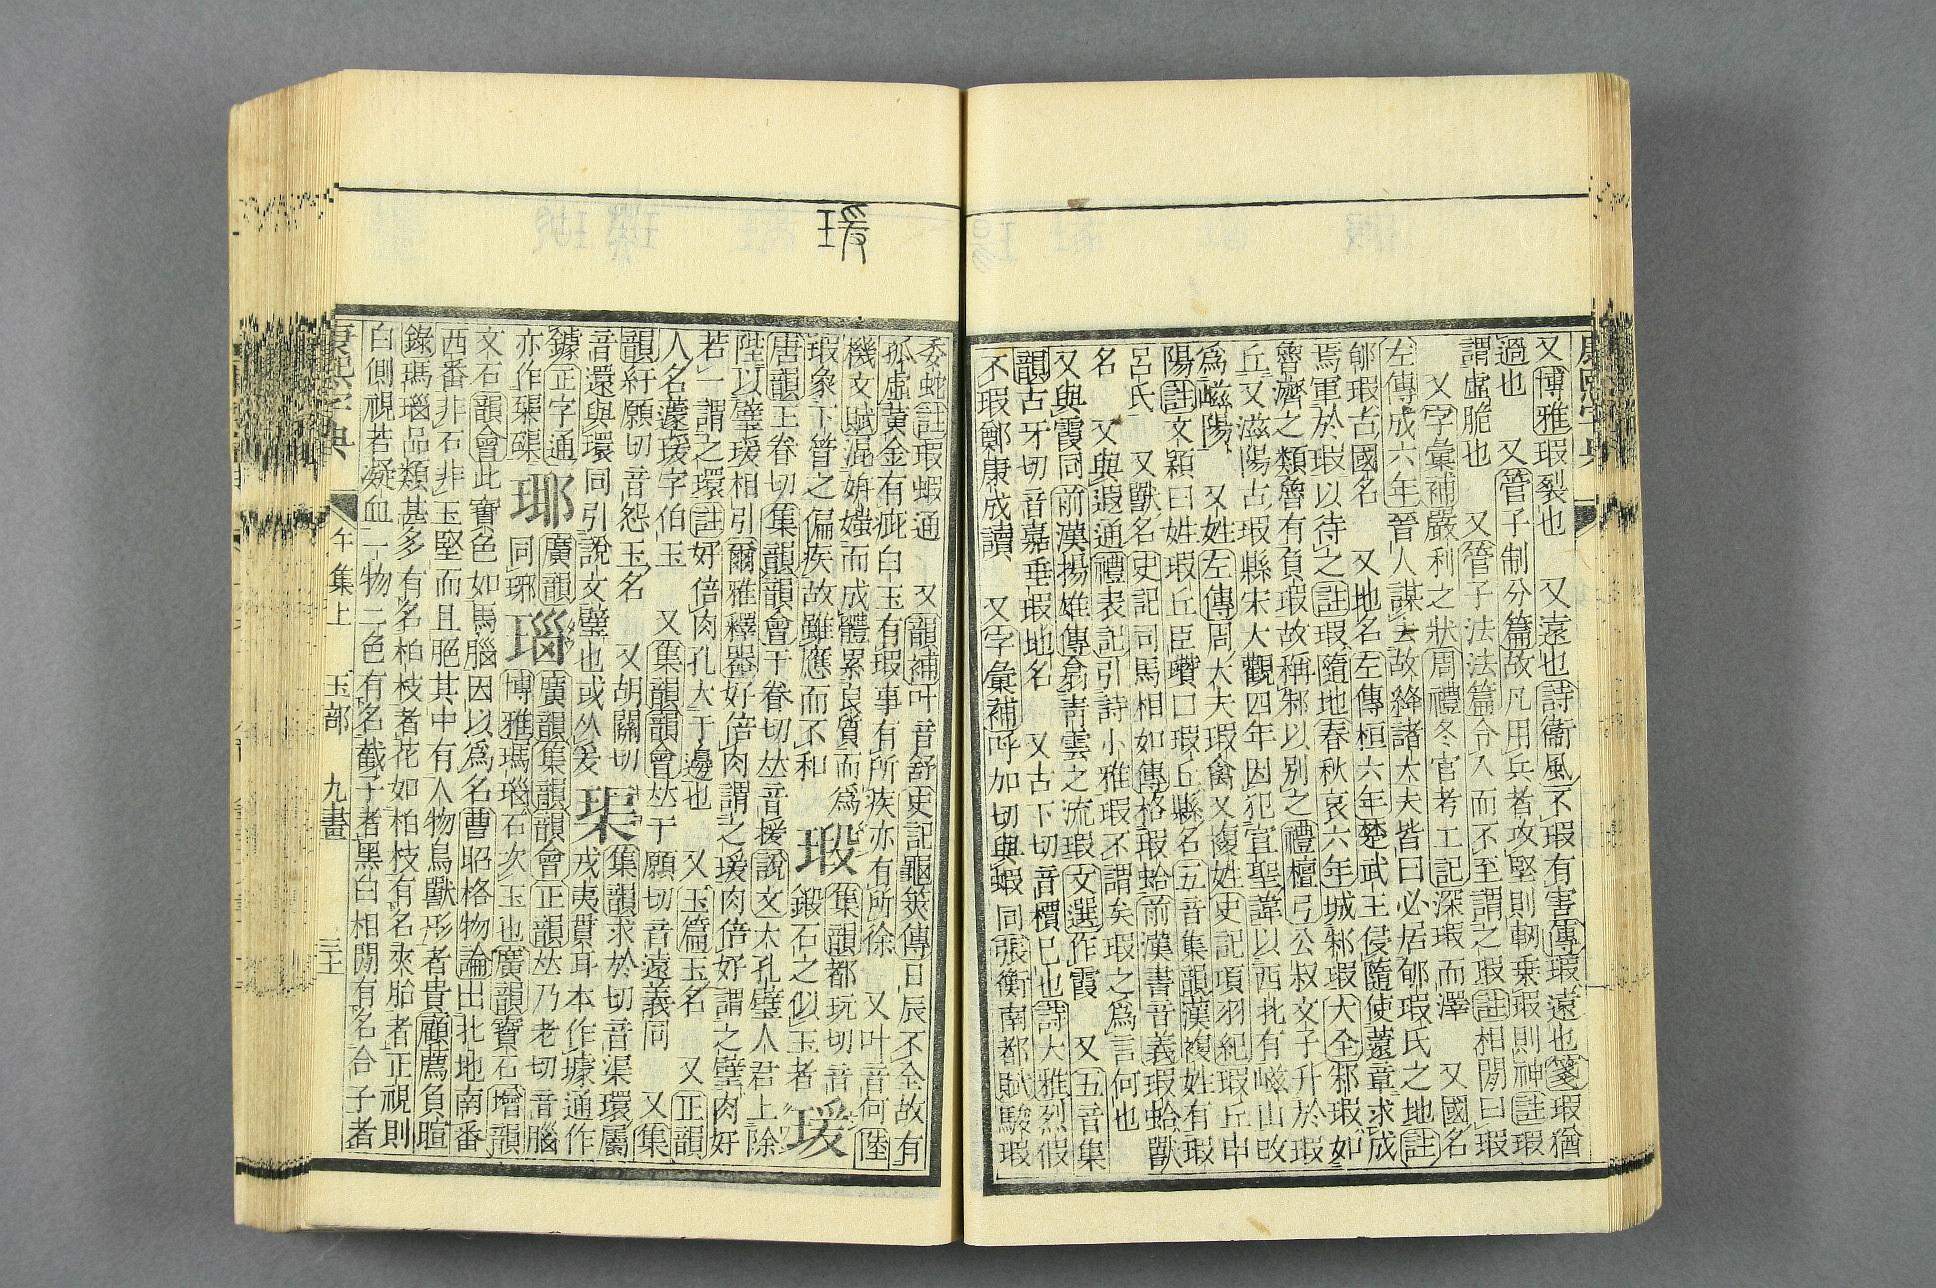 康熙字典
又博雅瑕裂也　又遠也詩衞風不瑕有害傳瑕遠也箋瑕猶
過也　又管子制分篇故凡用兵者攻堅則軔乗瑕則神註瑕
謂虛脆也　又管子法法篇令入而不至謂之瑕註相閒曰瑕
又字彙補嚴利之狀周禮冬官考工記深瑕而澤　又國名
左傳成六年晉人謀去故絳諸大夫皆曰必居郇瑕氏之地註
郇瑕古國名　又地名左傳桓六年楚武王侵隨使薳章求成
焉軍於瑕以待之註瑕隨地春秋哀六年城邾瑕大全邾瑕如
魯濟之類魯有負瑕故稱邾以別之禮檀弓公叔文子升於瑕
丘又滋陽古瑕縣宋大觀四年因犯宣聖諱以西北有嵫山改
爲嵫陽　又姓左傳周大夫瑕禽又複姓史記項羽紀瑕丘申
陽註文穎曰姓瑕丘臣瓚曰瑕丘縣名五音集韻漢複姓有瑕
呂氏　又獸名史記司馬相如傳格瑕蛤前漢書音義瑕蛤獸
名　又與遐通禮表記引詩小雅瑕不謂矣瑕之爲言何也
又與霞同前漢揚雄傳翕靑雲之流瑕文選作霞　又五音集
韻古牙切音嘉垂瑕地名　又古下切音檟已也詩大雅烈假
不瑕鄭康成讀　又字彙補呼加切與蝦同張衡南都賦駿瑕
瑗
委蛇註瑕蝦通　又韻補叶音舒史記龜筴傳日辰不全故有
孤虛黃金有疵白玉有瑕事有所疾亦有所徐　又叶音何陸
機文賦混姸媸而成體累良質而爲瑕象下管之偏疾故雖應而不和
瑖集韻都玩切音鍛石之似玉者
瑗唐韻王眷切集韻韻會于眷切𠀤音援說文大孔璧人君上除
陛以璧瑗相引爾雅釋器好倍肉謂之瑗肉倍好謂之璧肉好
若一謂之環註好倍肉孔大于邊也　又玉篇玉名　又正韻
人名蘧瑗字伯玉　又集韻韻會𠀤于願切音遠義同　又集
韻紆願切音怨玉名　又胡關切
音還與環同引說文璧也或从爰　琹集韻求於切音渠璖環屬
戎夷貫耳本作璩通作
鐻正字通
亦作璖磲　瑘廣韻
同琊　瑙廣韻集韻韻會正韻𠀤乃老切音腦
博雅瑪瑙石次玉也廣韻寶石增韻
文石韻會此寶色如馬腦因以爲名曹昭格物論出北地南番
西番非石非玉堅而且脆其中有人物鳥獸形者貴顧薦負暄
錄瑪瑙品類甚多有名柏枝者花如柏枝有名夾胎者正視則
白側視若凝血一物二色有名截子者黑白相閒有名合子者
康熙字典　午集上　玉部　九畫　三十